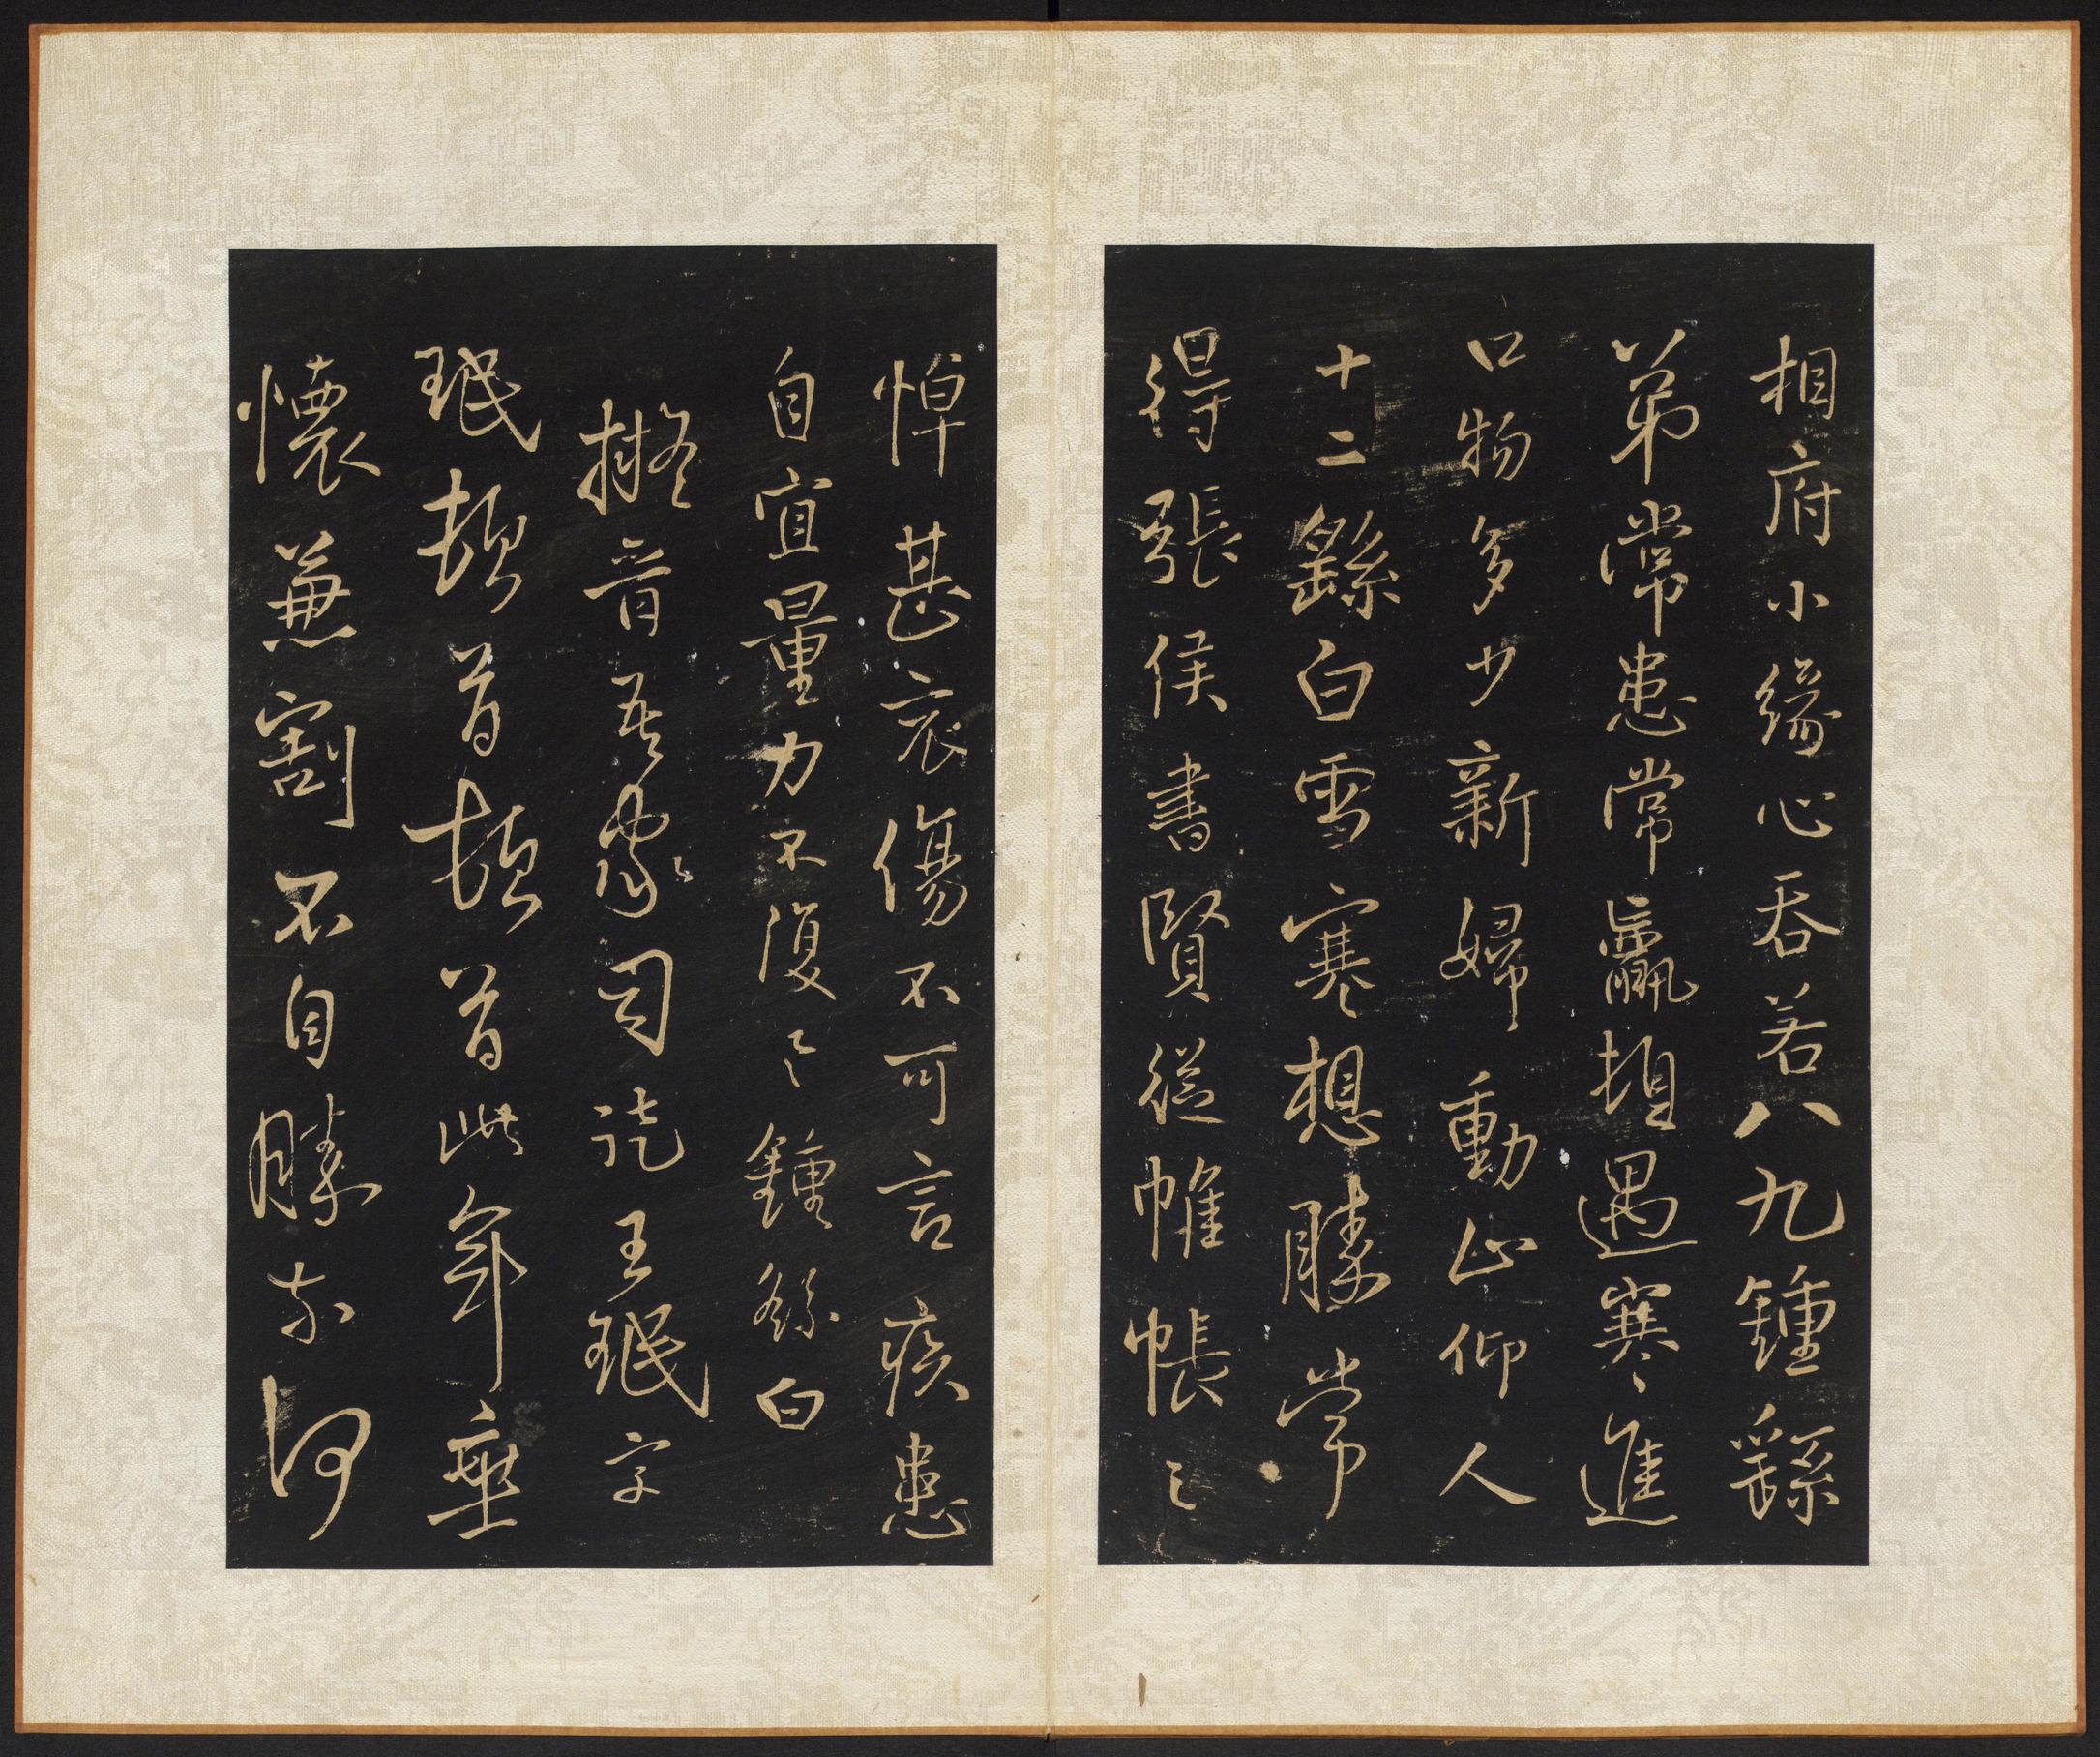 相府小緣心吞若八九鍾繇
弟常患常羸頓遇寒進
口物多少新婦動止仰人
十二繇白雪寒想勝常
得張侯書賢從帷帳之
悼甚哀傷不可言疾患
自宜量力不復鍾繇白
擬晉吾家司徒王珉字
珉頓首頓首此年垂
懷兼割不自勝奈何